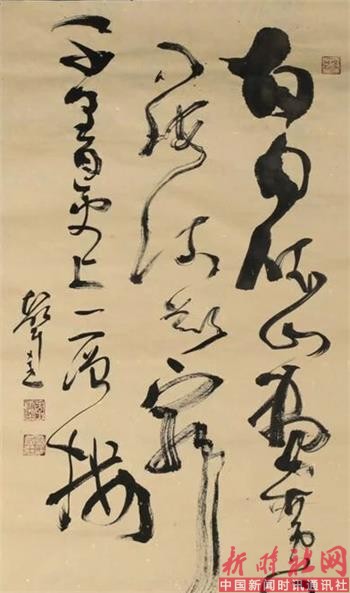 白日依山盡黃河
入海流欲窮
千里目更上一層樓
新时社网
中国新闻时讯通讯社